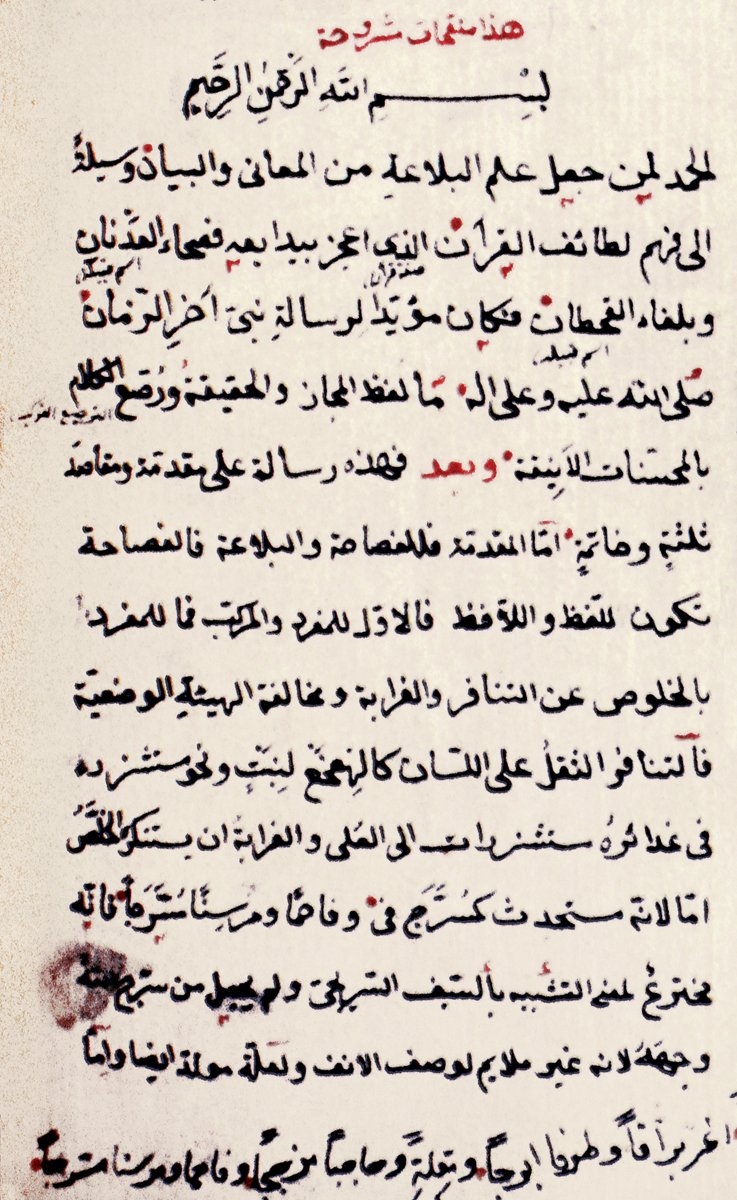 هذا منقحات مشروحة
بسم الله الرحمن الرحيم
الحمد لمن جعل علم البلاغة من المعانى والبيان وسيلةً
الى فهم لطائف القرآن الذى اعجز ببدايعه فصحاء العدنان
صفة قرآن اسم قبيله
وبلغاء القحطان فكان مؤيّدا لرسالةِ نبىّ آخرِ الزّمان
اسم قبيله
صلى الله عليه وعلى اله مّا لفظ المجاز والحقيقة ورُصّع الكلام
الترصيع التركيب
بالمحسّنات الأنِيقة وبعد فهذه رسالة على مقدمة ومقاصدَ
ثلثةٍ وخاتمةٍ امّا المقدمة فللفصاحة والبلاغة فالفصاحة
تكون للّفظ واللاّفظ فالاوّل للمفرد والمركّب فما للمفرد
بالخلوص عن التنافر والغرابة ومخالفة الهيئةِ الوضعيّة
فالتنافر الثقلُ على اللسان كالهِعخع لِنبتٍ ونحو مستشزر ده
فى غدائرهُ مستشزرات الى العُلى والغرابةُ ان يستنكرَ الخلّصُ
امّا لانّه مستحدث كمُسَرَّج فى وفاحمًا ومرسِنًا مُسَرَّجاً فانّه
مخترعٌ لمعنى التشبيه بالسّيف السّريجىّ ولم يجعل من سرّج الله
وجهَهُ لانه غير ملايم لوصف الانف ولعلّة مولدة ايضا وامّا
اغر براقاً وطرفا ابرجاً ومقلةً وحاجباً مزججاً وفاحما ومرسنا مسرجاً